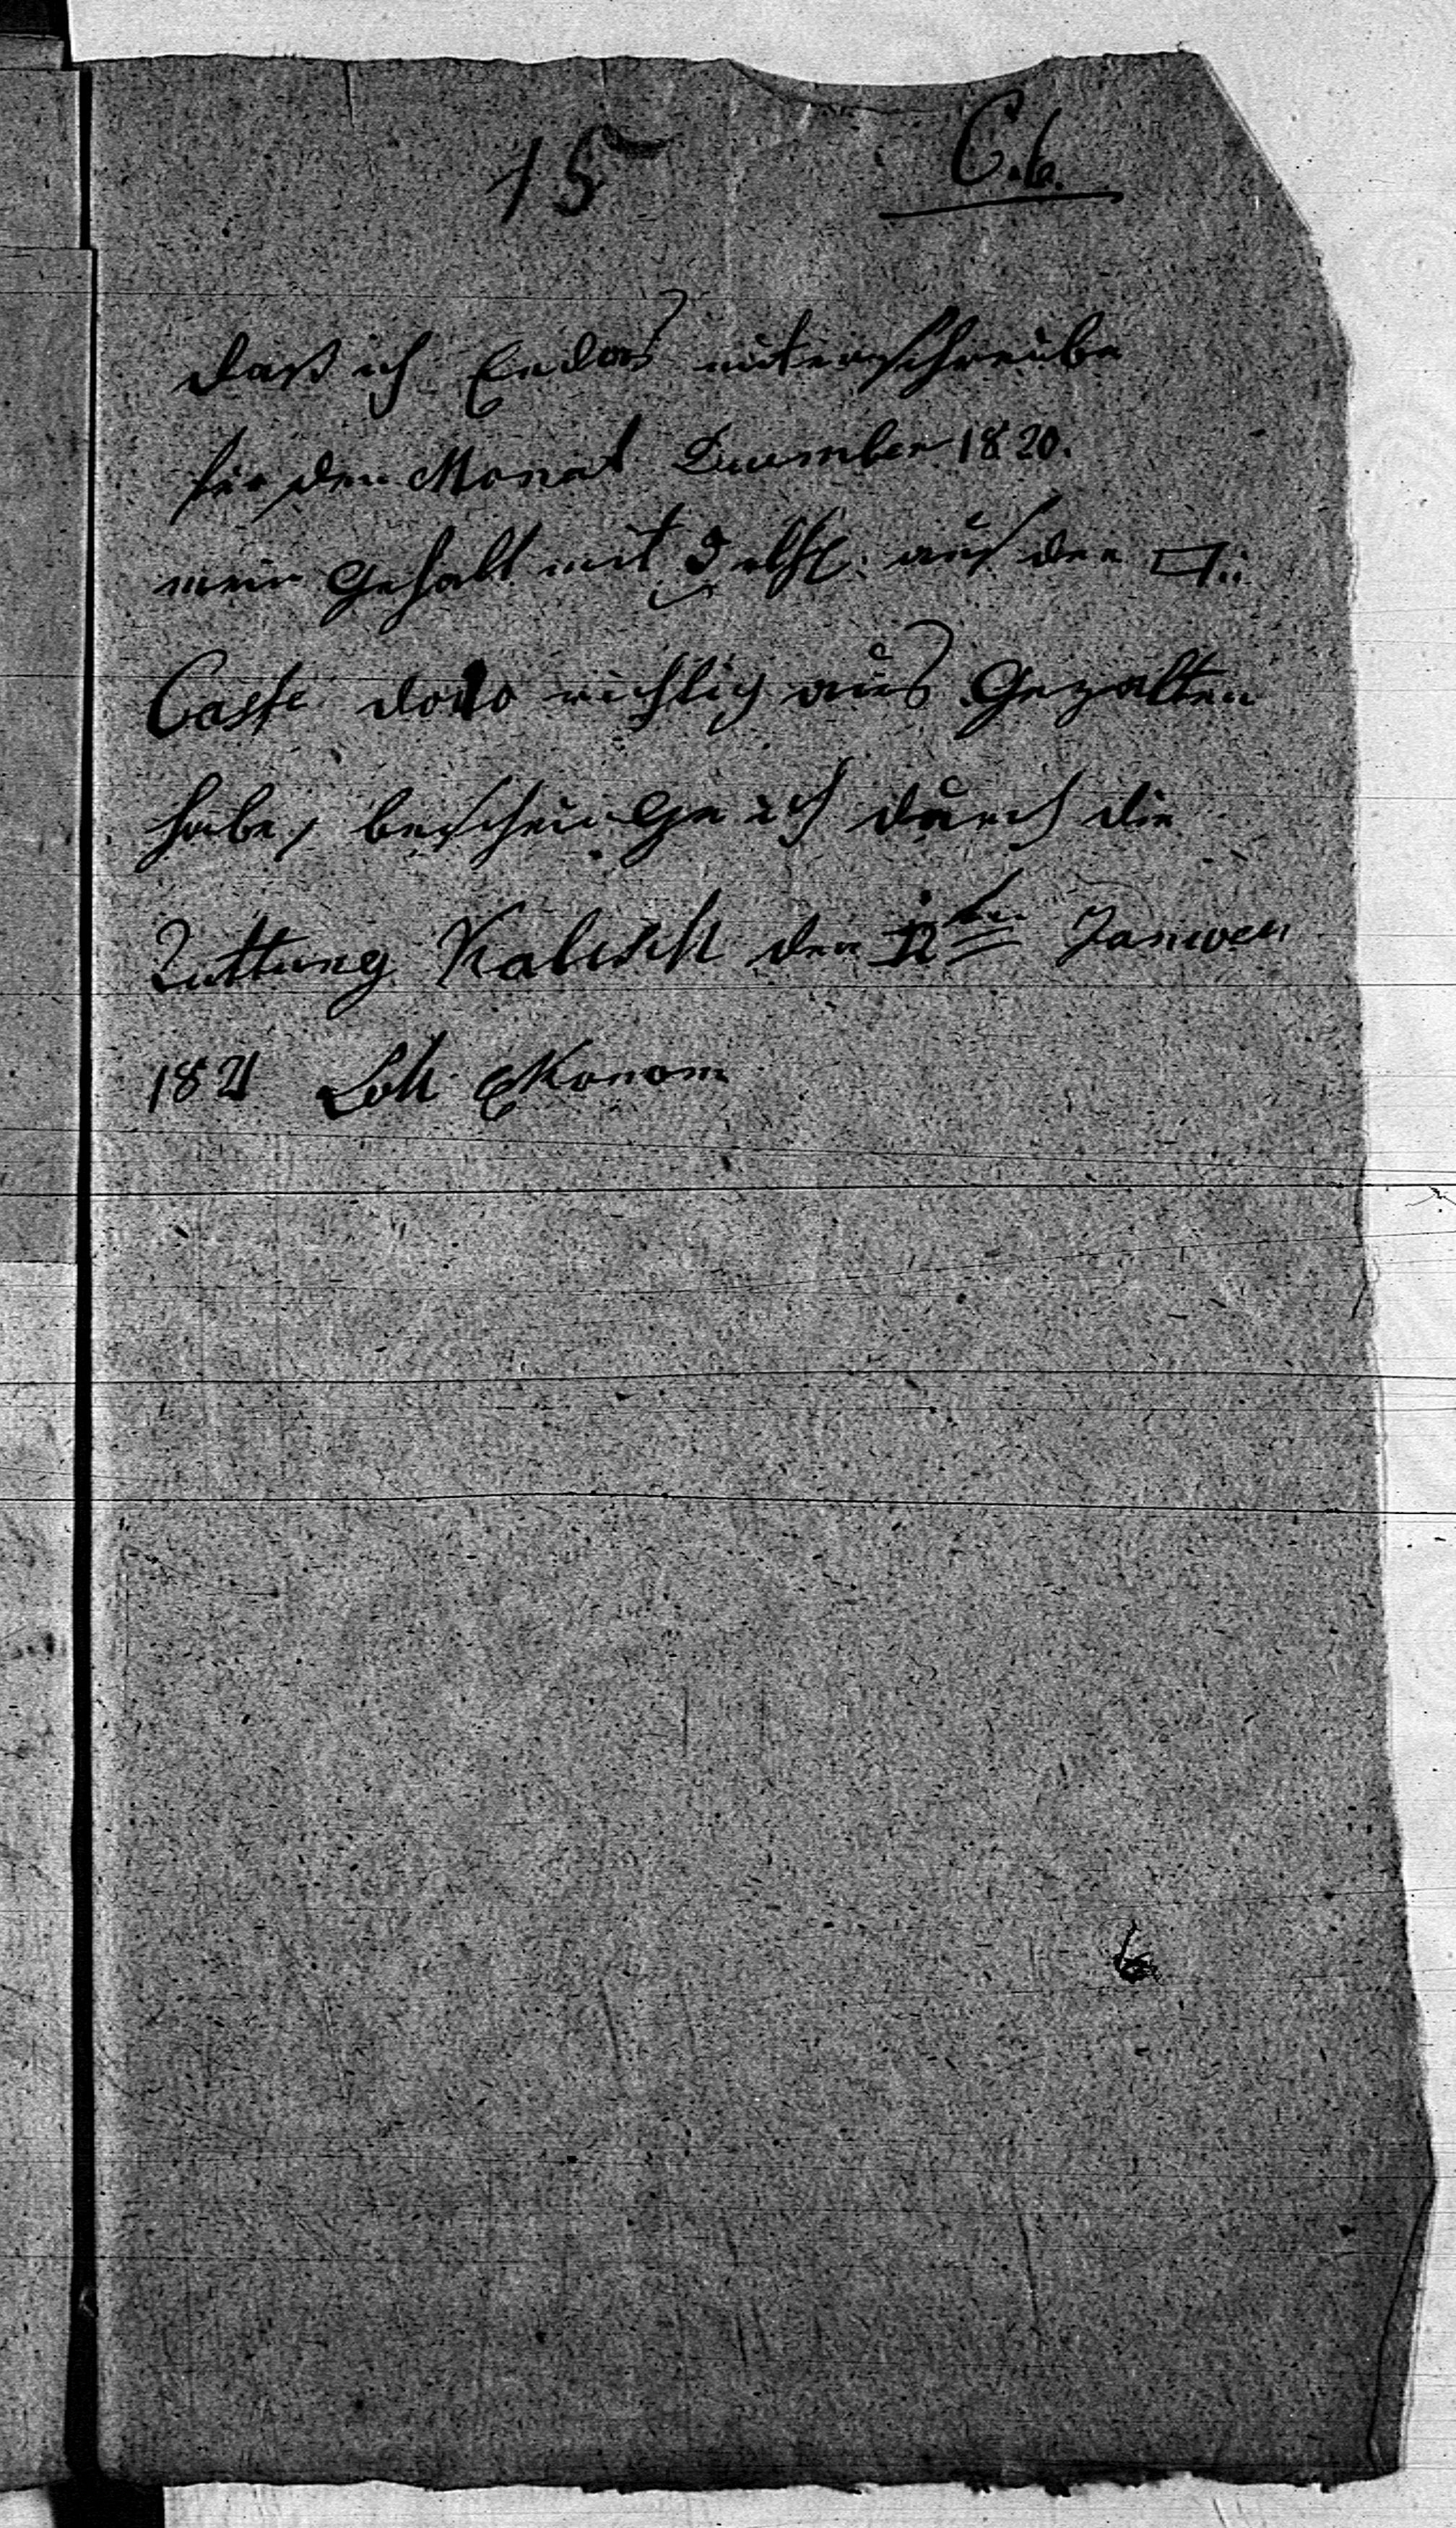 15 C.6.
daß ich Endes unterschreibe
für den Monat December 1820.
mein Gehalt mit 3 rthl: aus der □.:
Casse dato richtig aus Gezalten
habe, bescheinige ich durch die
Quttung Kalisch den 12ten Januar
1821 Loh Ekonom